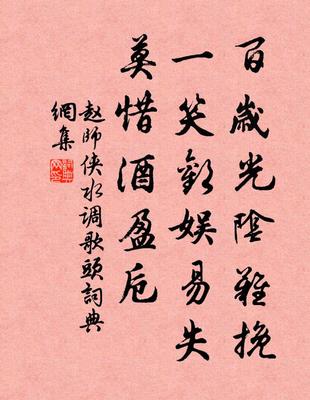 百歲光陰難挽
一笑歡娱易失
莫惜酒盈卮
趙師侠水调歌頭詞典
網集